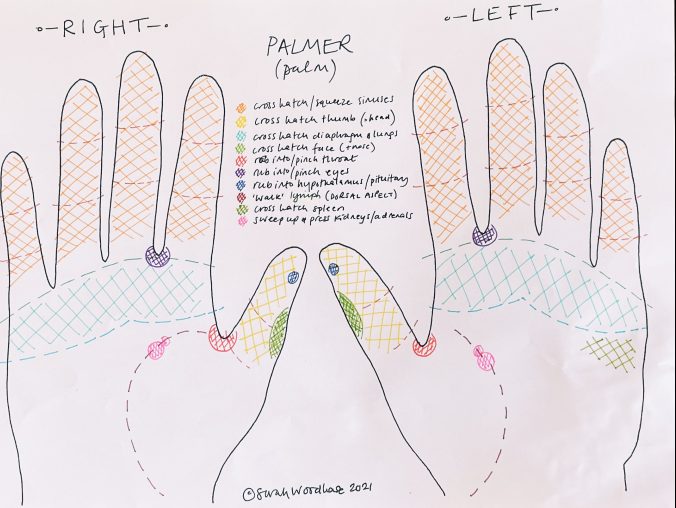 RIGHT
LEFT
PALMER
(palm)
cross hatch/squeeze sinuses
cross hatch thumb (head)
cross hatch diaphragm & lungs
cross hatch face (+nose)
rub into/pinch throat
rub into/pinch eyes
rub into hypothalamus/pituitary
lymph (DORSAL ASPECT)
cross hatch spleen
sweep up & press kidneys/adrenals
© Sarah Woodhouse 2021